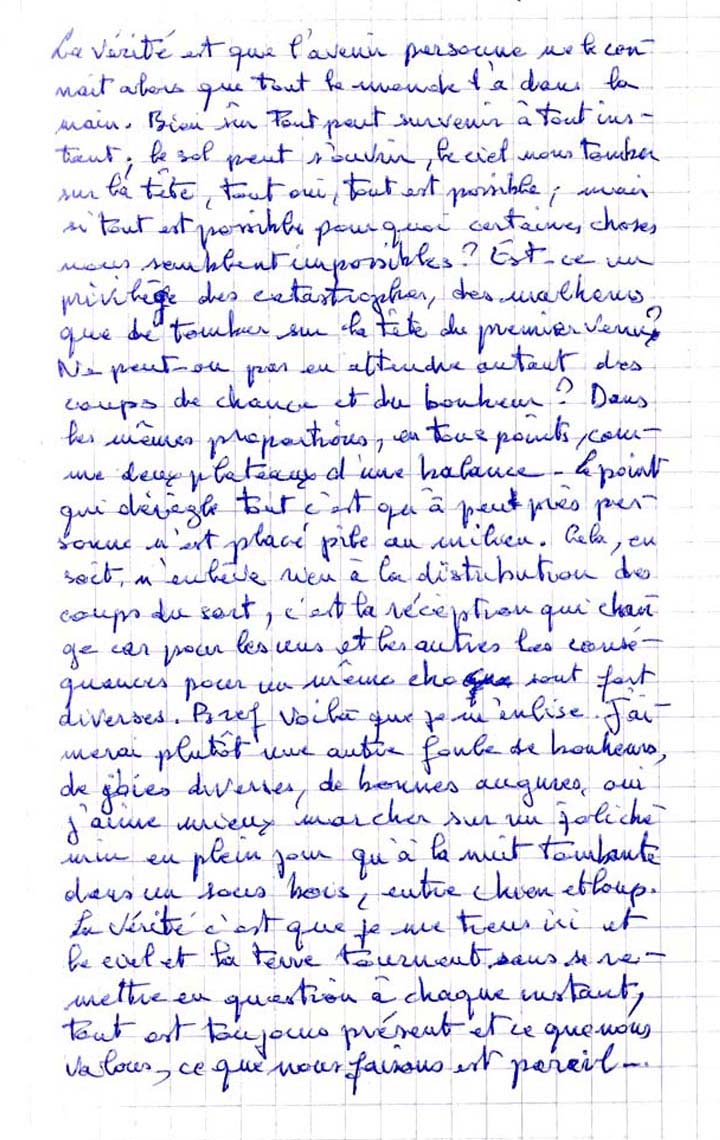 La vérité est que l'avenir personne ne le con-
naît alors que tout le monde l'a dans la
main. Bien sûr tout peut survenir à tout ins-
tant, le sol peut s'ouvrir, le ciel nous tomber
sur la tête, tout oui, tout est possible ; mais
si tout est possible pourquoi certaines choses
nous semblent impossibles ? Est-ce un
privilège des catastrophes, des malheurs
que de tomber sur la tête du premier venu ?
Ne peut-on pas en attendre autant des
coups de chance et du bonheur ? Dans
les mêmes proportions, en tous points, com-
me deux plateaux d'une balance - le point
qui dérègle tout c'est qu'à peut près per-
sonne n'est placé pile au milieu. Cela, en
soit, n'enlève rien à la distribution des
coups du sort, c'est la réception qui chan
ge car pour les uns et les autres les consé-
quences pour un même choque sont fort
diverses. Bref voilà que je m'enlise. J'ai-
merai plutôt une autre foule de bonheurs,
de joies diverses, de bonnes augures, oui
j'aime mieux marcher sur un joli che
min en plein jour qu'à la nuit tombante
dans un sous bois, entre chien et loup.
La vérité c'est que je me tiens ici et
le ciel et la terre tournent sans se re-
mettre en question à chaque instant,
tout est toujours présent et ce que nous
valons, ce que nous faisons est pareil -